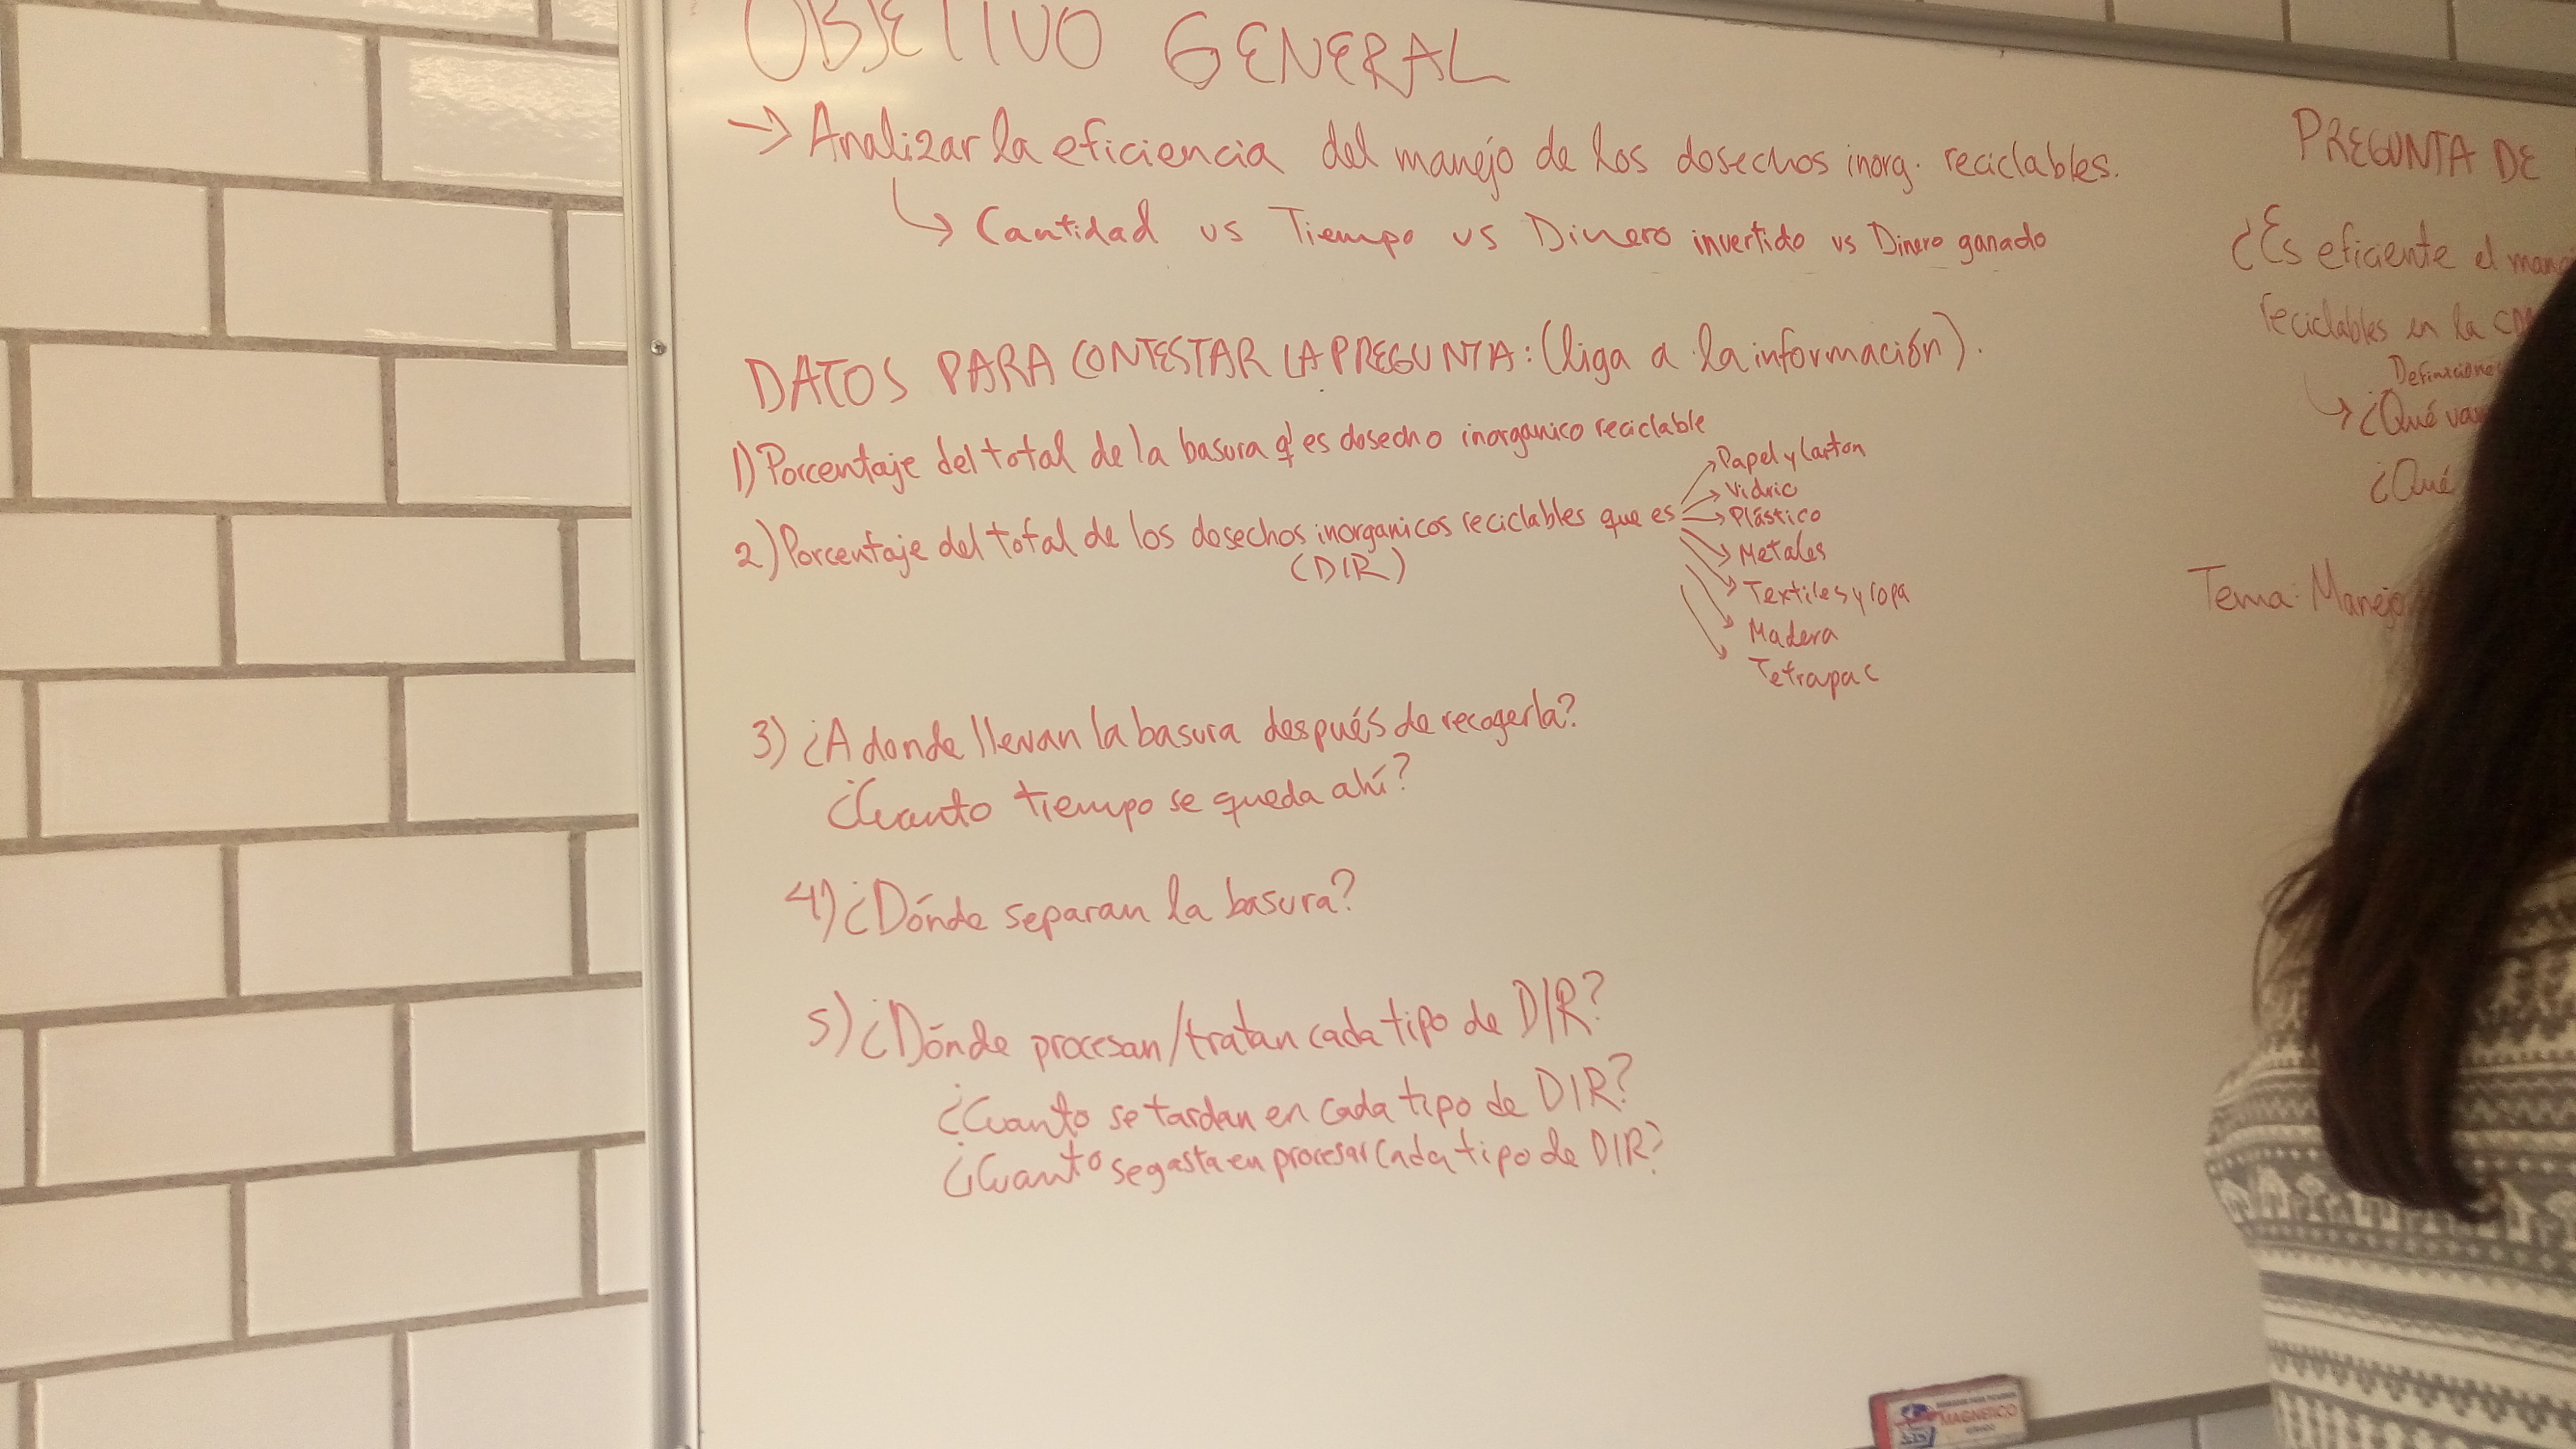 OBJETIVO GENERAL
→ Analizar la eficiencia del manejo de los dosechos inorg. reciclables.
↳ Cantidad vs Tiempo vs Dinero invertido vs Dinero ganado
DATOS PARA CONTESTAR LA PREGUNTA: (liga a la información).
1) Porcentaje del total de la basura q' es dosecho inorganico reciclable
2) Porcentaje del total de los desechos inorganicos reciclables que es
(DIR)
→ Papel y Carton
→ Vidrio
→ Plástico
→ Metales
→ Textiles y ropa
Madera
Tetrapac
3) ¿A donde llevan la basura después de recogerla?
¿Cuanto tiempo se queda ahí?
4) ¿Dónde separan la basura?
5) ¿Dónde procesan/tratan cada tipo de DIR?
¿Cuanto se tardan en cada tipo de DIR?
¿Cuanto se gasta en procesar cada tipo de DIR?
PREGUNTA DE
¿Es eficiente el
reciclables en la
→ ¿Qué
¿Qué
Tema: Manejo
MAGNETICO